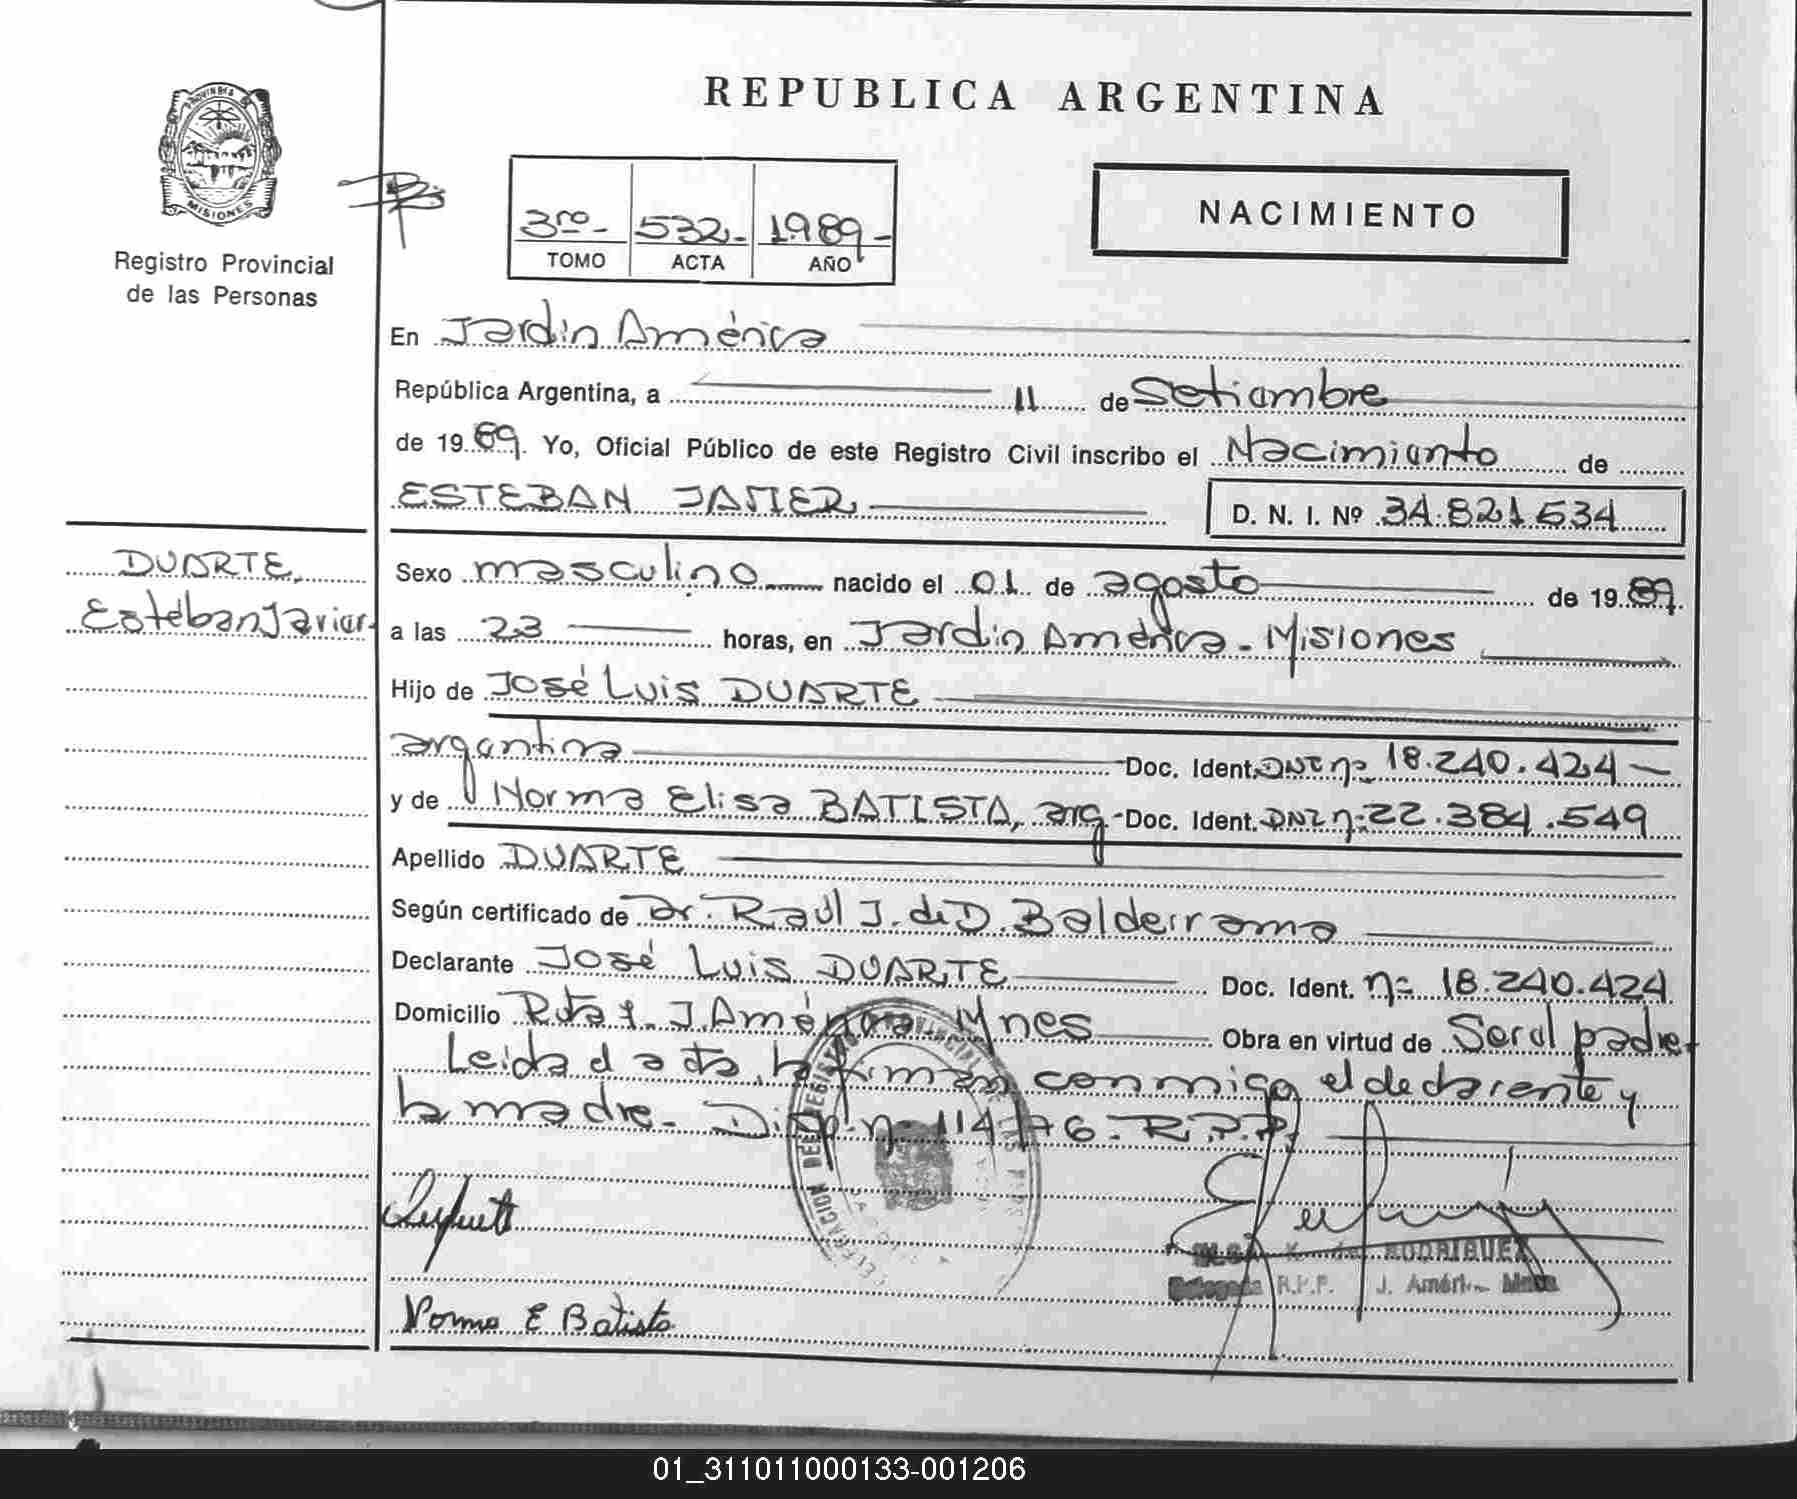 PROVINCIA DE
MISIONES
Registro Provincial
de las Personas
REPUBLICA ARGENTINA
3ro- 532- 1989-
TOMO ACTA AÑO
NACIMIENTO
En Jardín América
República Argentina, a 11 de Setiembre
de 1989. Yo, Oficial Público de este Registro Civil inscribo el Nacimiento de
ESTEBAN JAVIER D. N. I. Nº 34.821.534
DUARTE,
Esteban Javier
Sexo masculino nacido el 01 de agosto de 1989.
a las 23 horas, en Jardín América - Misiones
Hijo de José Luis DUARTE
argentina Doc. Ident. DNI nº 18.240.424
y de Norma Elisa BATISTA, arg. Doc. Ident. DNI nº 22.384.549
Apellido DUARTE
Según certificado de Dr. Raúl J. de D. Balderrama
Declarante José Luis DUARTE Doc. Ident. nº 18.240.424
Domicilio Ruta J. América Mnes Obra en virtud de Ser el padre.
Leída el acta, la firman conmigo el declarante y
la madre. Disp. nº 114/76. R.P.P.
Norma E Batista
RODRIGUEZ
Delegada R.P.P. J. Améri
01_311011000133-001206